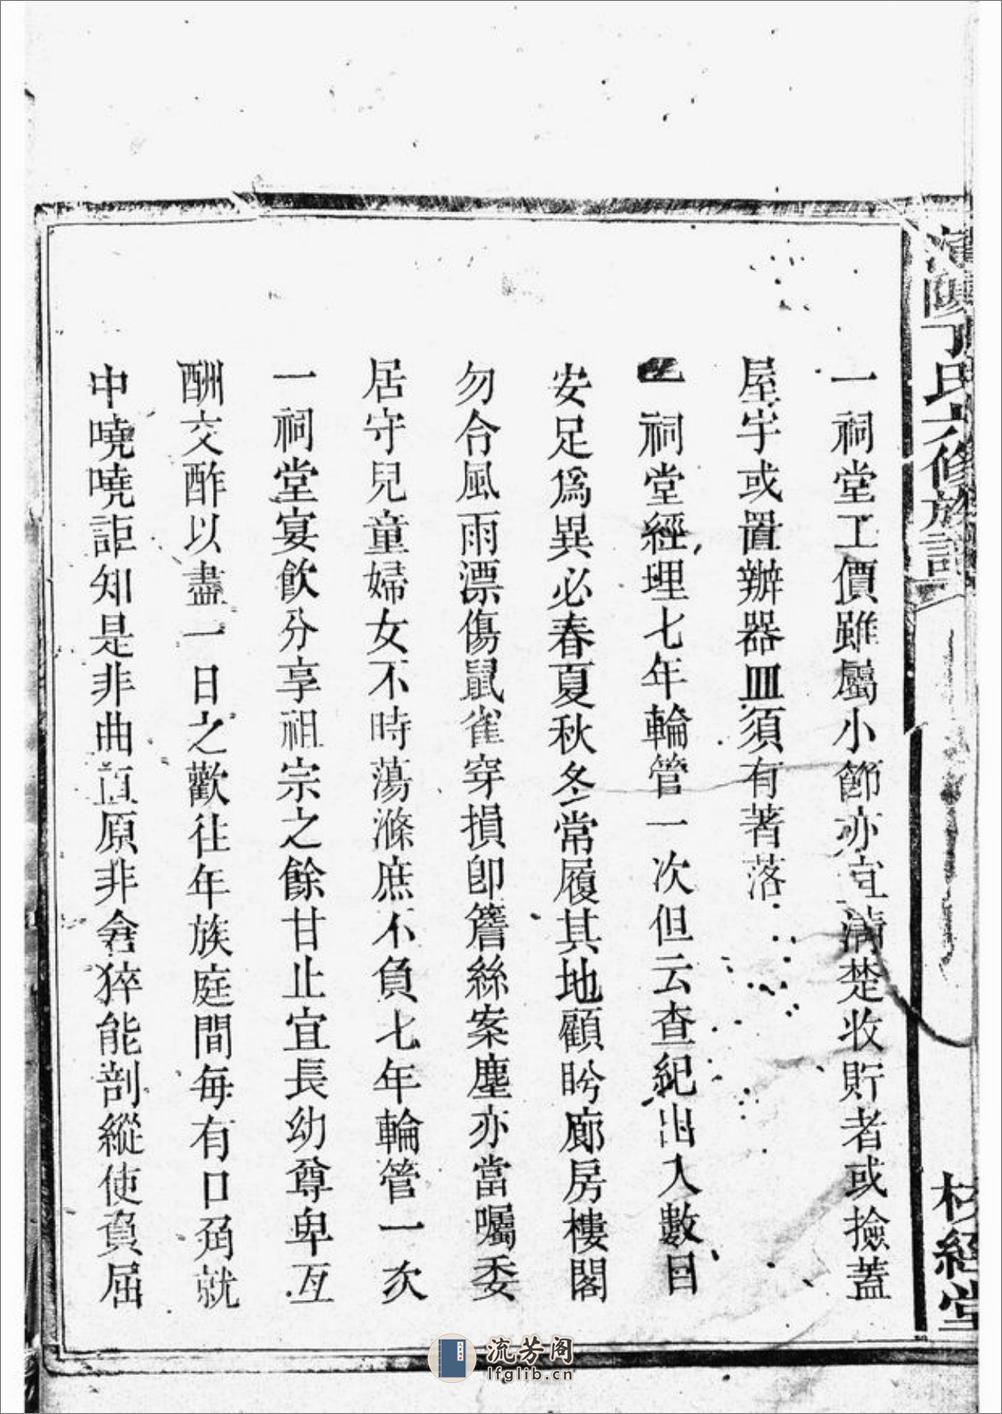 陽丁氏六修族譜
校經堂
一祠堂工價雖屬小節亦宜清楚收貯者或撿蓋
屋宇或置辦器皿須有著落
一祠堂經理七年輪管一次但云查紀出入數目
安足爲異必春夏秋冬常履其地顧盻廊房樓閣
勿合風雨漂傷鼠雀穿損卽簷絲案塵亦當囑委
居守兒童婦女不時蕩滌庶不負七年輪管一次
一祠堂宴飲分享祖宗之餘甘止宜長幼尊卑互
酬交酢以盡一日之歡往年族庭間每有口角就
中嘵嘵詎知是非曲直原非倉猝能剖縱使負屈
流芳阁
lfglib.cn